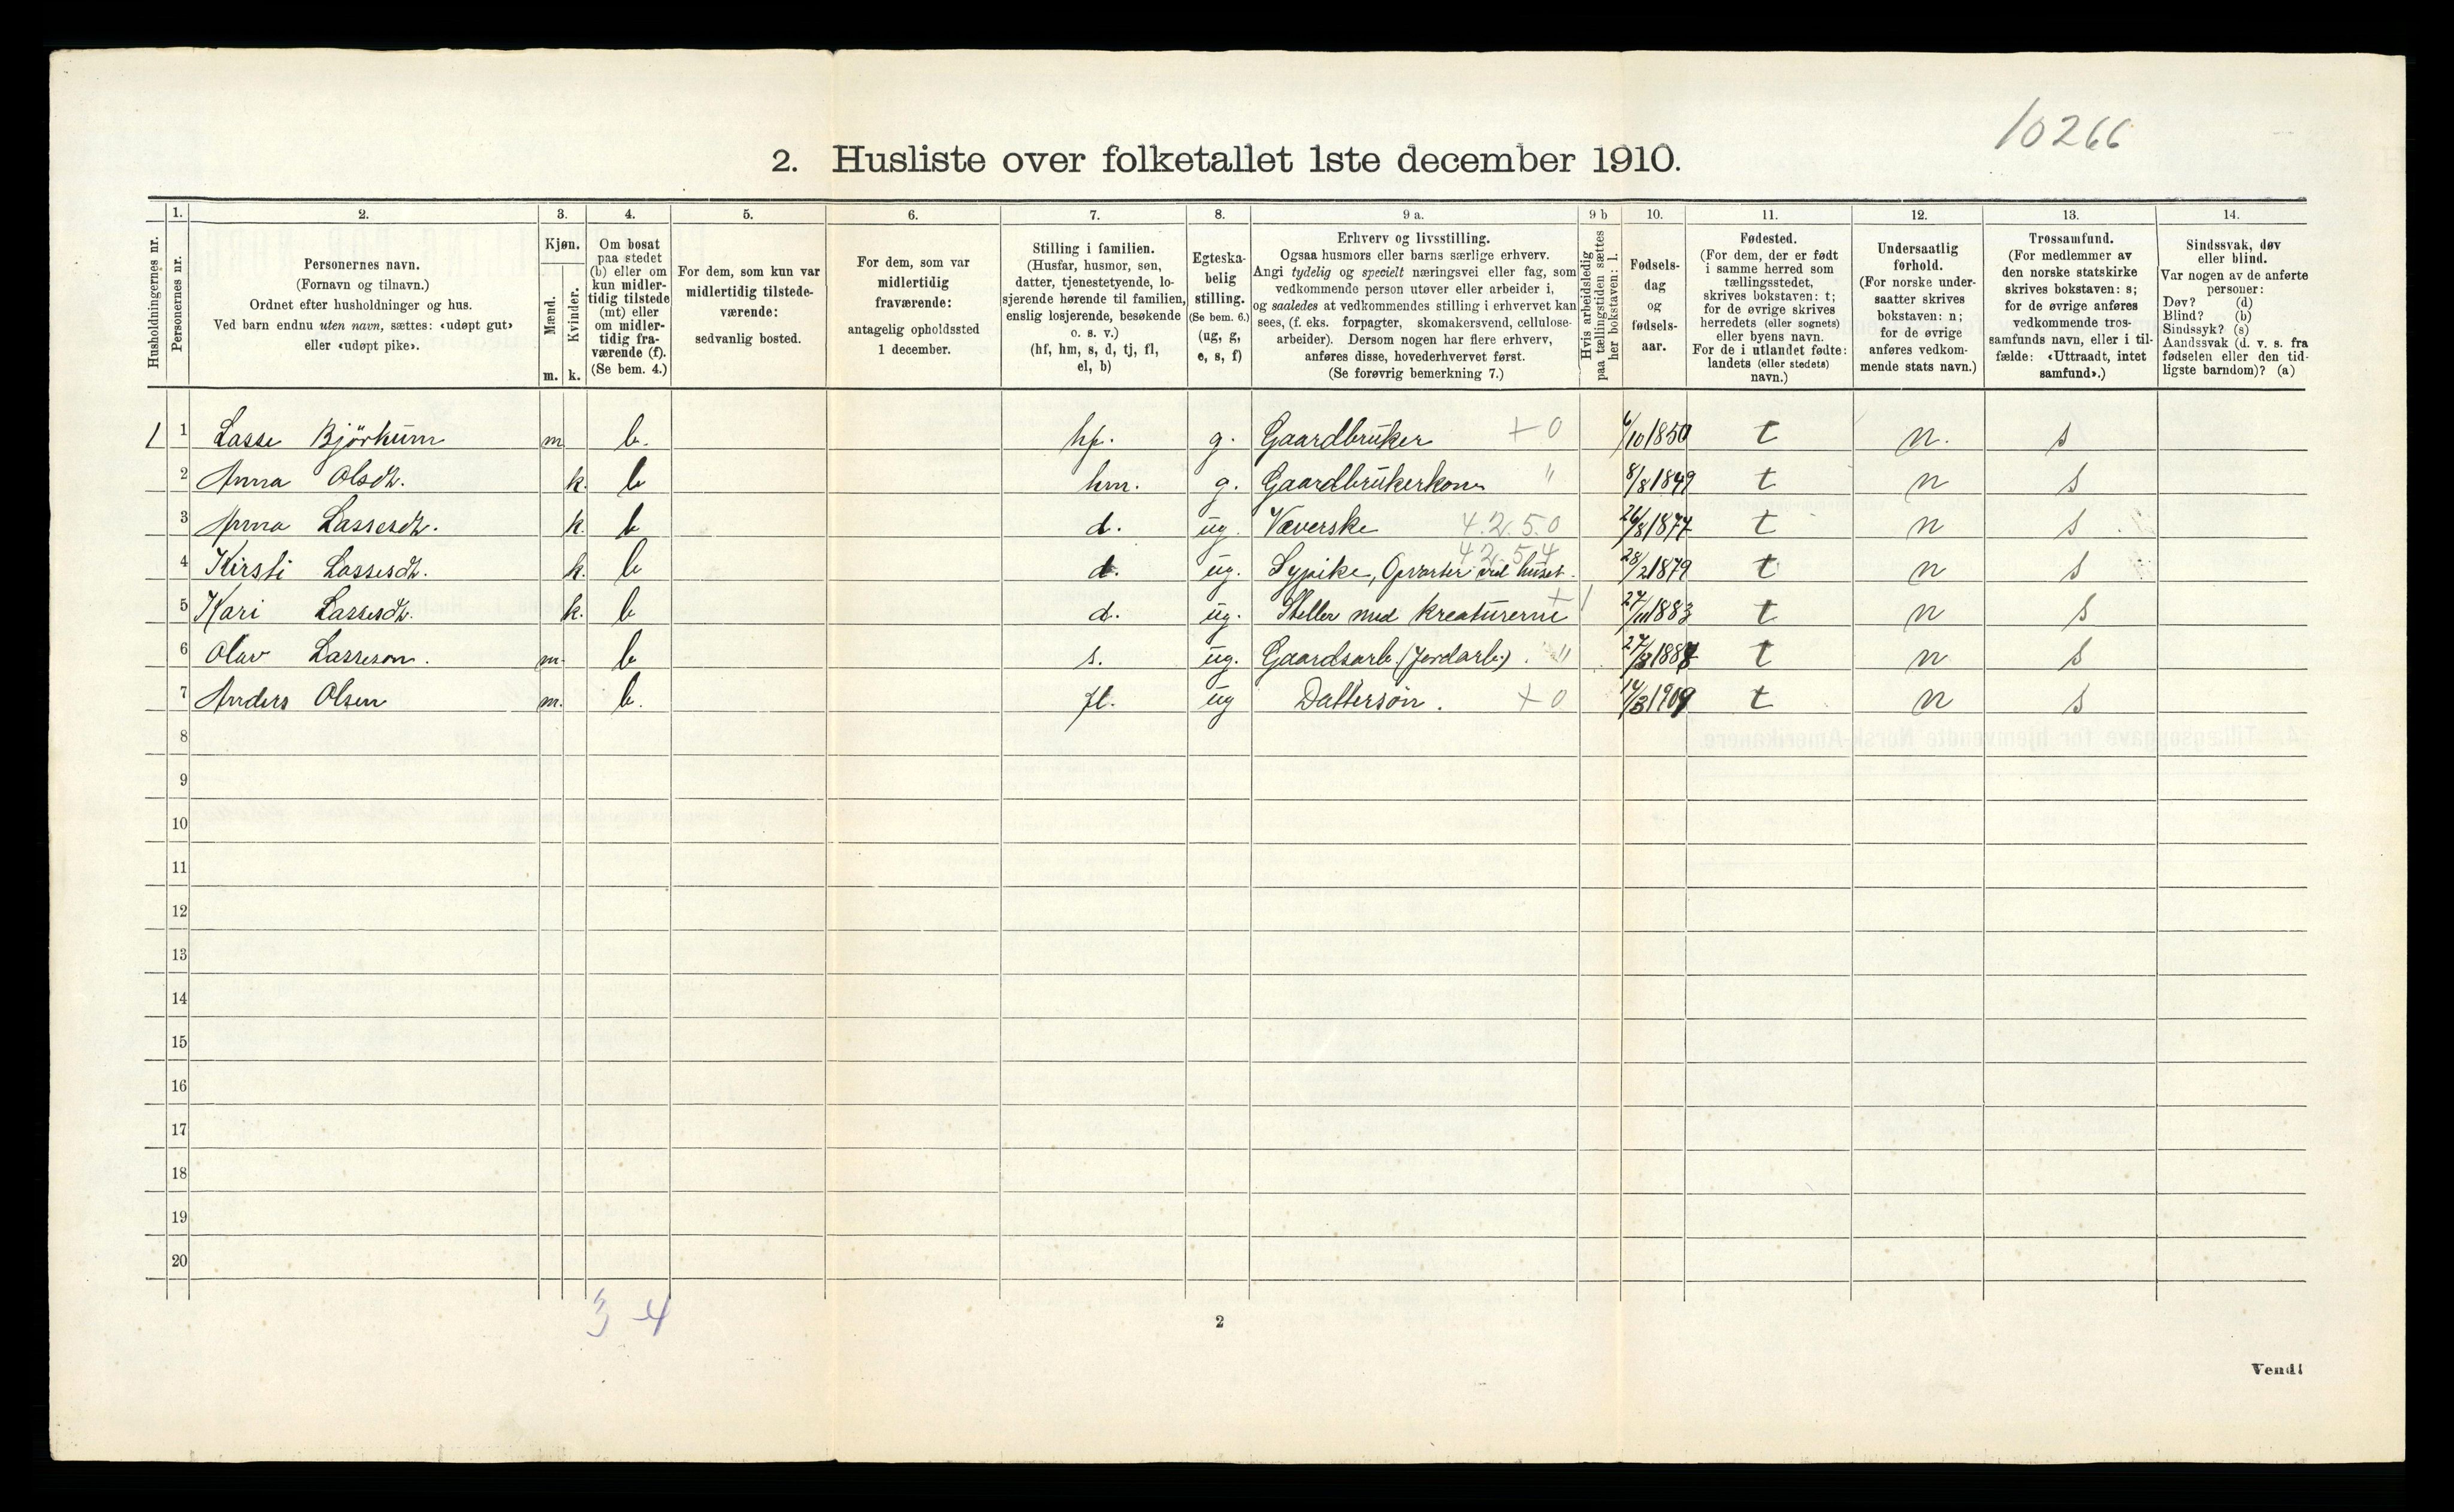 10266
2. Husliste over folketallet 1ste december 1910.
1. 2. 3. 4. 5. 6. 7. 8. 9 a. 9 b 10. 11. 12. 13. 14.
Husholdningernes nr.
Personernes nr.
Personernes navn.
(Fornavn og tilnavn.)
Ordnet efter husholdninger og hus.
Ved barn endnu uten navn, sættes: «udøpt gut»
eller «udøpt pike».
Kjøn.
Mænd.
Kvinder.
m. k.
Om bosat
paa stedet
(b) eller om
kun midler-
tidig tilstede
(mt) eller
om midler-
tidig fra-
værende (f).
(Se bem. 4.)
For dem, som kun var
midlertidig tilstede-
værende:
sedvanlig bosted.
For dem, som var
midlertidig
fraværende:
antagelig opholdssted
1 december.
Stilling i familien.
(Husfar, husmor, søn,
datter, tjenestetyende, lo-
sjerende hørende til familien,
enslig losjerende, besøkende
o. s. v.)
(hf, hm, s, d, tj, fl,
el, b)
Egteska-
belig
stilling.
(Se bem. 6.)
(ug, g,
e, s, f)
Erhverv og livsstilling.
Ogsaa husmors eller barns særlige erhverv.
Angi tydelig og specielt næringsvei eller fag, som
vedkommende person utøver eller arbeider i,
og saaledes at vedkommendes stilling i erhvervet kan
sees, (f. eks. forpagter, skomakersvend, cellulose-
arbeider). Dersom nogen har flere erhverv,
anføres disse, hovederhvervet først.
(Se forøvrig bemerkning 7.)
Hvis arbeidsledig
paa tællingstiden sættes
her bokstaven: l.
Fødsels-
dag
og
fødsels-
aar.
Fødested.
(For dem, der er født
i samme herred som
tællingsstedet,
skrives bokstaven: t;
for de øvrige skrives
herredets (eller sognets)
eller byens navn.
For de i utlandet fødte:
landets (eller stedets)
navn.)
Undersaatlig
forhold.
(For norske under-
saatter skrives
bokstaven: n;
for de øvrige
anføres vedkom-
mende stats navn.)
Trossamfund.
(For medlemmer av
den norske statskirke
skrives bokstaven: s;
for de øvrige anføres
vedkommende tros-
samfunds navn, eller i til-
fælde: «Uttraadt, intet
samfund».)
Sindssvak, døv
eller blind.
Var nogen av de anførte
personer:
Døv? (d)
Blind? (b)
Sindssyk? (s)
Aandssvak (d. v. s. fra
fødselen eller den tid-
ligste barndom)? (a)
1 1 Lasse Björkum m b. hf. g. Gaardbruker + 0 6/10 1850 t n. s
2 Anna Olsdt. k. b hm. g. Gaardbrukerkone " 8/8 1849 t n s
3 Anna Lassesdt. k. b d. ug. Væverske 4.2.5.0 26/8 1877 t n s
4 Kirsti Lassesdt. k. b d. ug. Sypike, Opvarter ved huset. 42.54 28/2 1879 t n s
5 Kari Lassesdt. k. b d. ug. Steller med kreaturerne + 1883 t n s
6 Olav Lasseson. m. b s. ug. Gaardsarb. (Jordarb.). " t n s
7 Anders Olsen m. b. fl. ug Dattersön. + 0 14/3 1909 t n s
8
9
10
11
12
13
14
15
16
17
18
19
20
3 4
2
Vend!